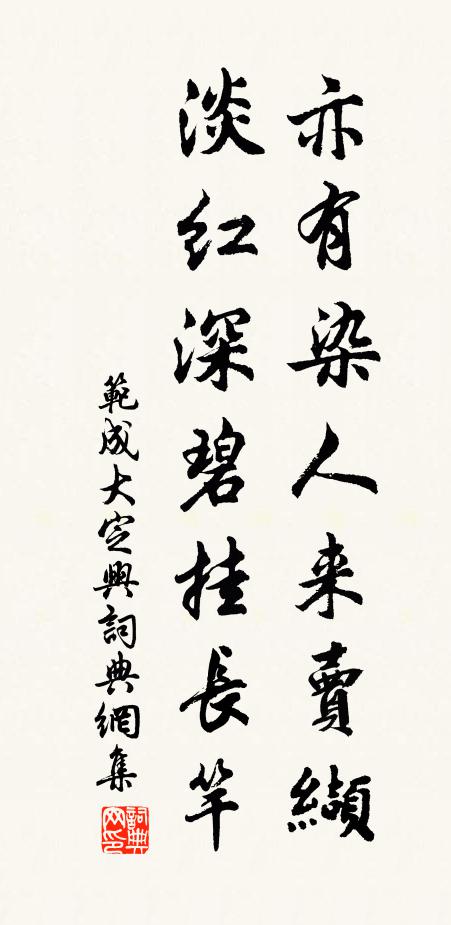 亦有染人来賣纈
淡紅深碧挂長竿
範成大定興詞典網集
詞典
网印